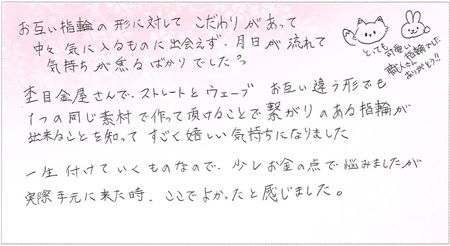 お互い指輪の形に対して こだわりがあって
中々 気に入るものに出会えず、月日が流れて
気持ちが焦るばかりでした?
杢目金屋さんで、ストレートとウェーブ お互い違う形でも
1つの同じ素材で作って頂けることで繋がりのある指輪が
出来ることを知って すごく嬉しい気持ちになりました
一生付けていくものなので、少しお金の点で悩みましたが
実際手元に来た時、ここでよかったと感じました。
とっても可愛い
指輪でした
職人さん
ありがとう!!